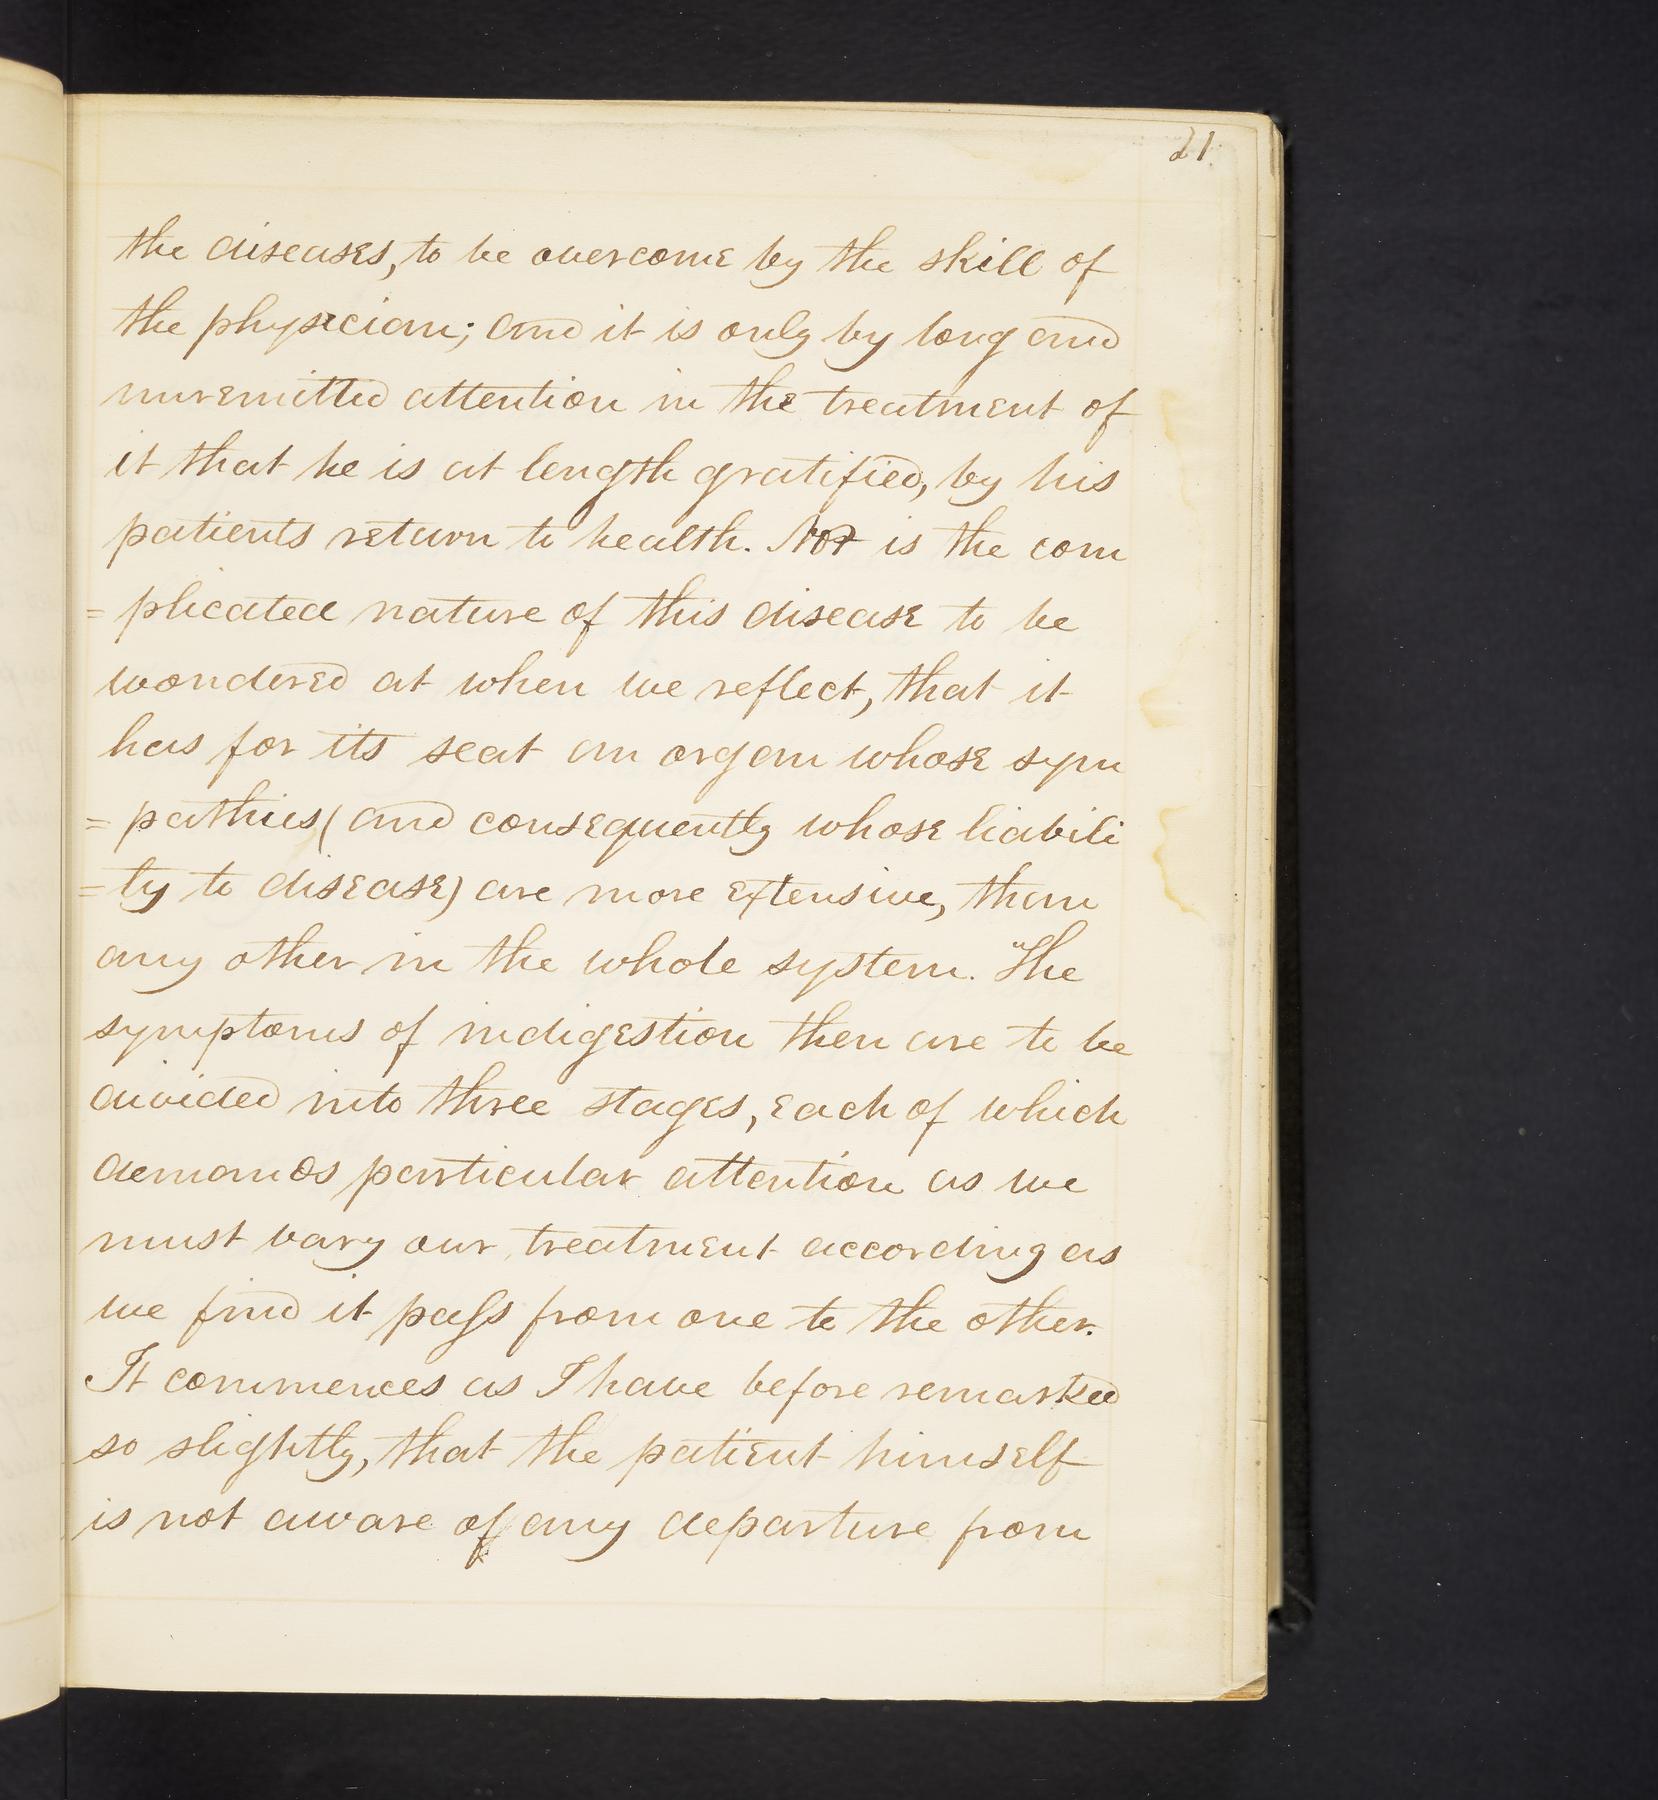 21.
the diseases, to be overcome by the skill of
the physician; and it is only by long and
unremitted attention in the treatment of
it that he is at length gratified, by his
patients return to health. Nor is the com
= plicated nature of this disease to be
wondered at when we reflect, that it
has for its seat an organ whose sym
= pathies (and consequently whose liabili
= ty to disease) are more extensive, than
any other in the whole system. "The
symptoms of indigestion then are to be
divided into three stages, each of which
demands particular attention as we
must vary our treatment according as
we find it paſs from one to the other.
It commences as I have before remarked
so slightly, that the patient himself
is not aware of any departure from